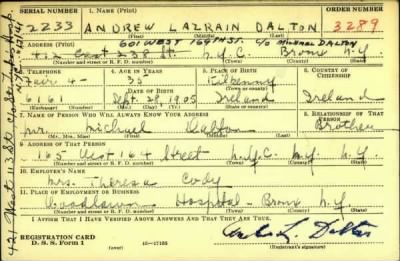 SERIAL NUMBER 1. NAME (Print) ORDER NUMBER
2233 ANDREW LALRAIN DALTON 3289
(First) (Middle) (Last)
601 WEST 169TH ST. C/O MICHAEL DALTON
2. ADDRESS (Print)
East 238 St. N.Y.C. Bronx N.Y.
(Number and street or R. F. D. number) (Town) (County) (State)
3. TELEPHONE 4. AGE IN YEARS 5. PLACE OF BIRTH 6. COUNTRY OF CITIZENSHIP
4- 35 Kilkenny
DATE OF BIRTH (Town or county)
6161 Sept. 8 1905 Ireland Ireland
(Exchange) (Number) (Mo.) (Day) (Yr.) (State or country)
7. NAME OF PERSON WHO WILL ALWAYS KNOW YOUR ADDRESS 8. RELATIONSHIP OF THAT PERSON
Mr. Michael Dalton Brother
(Mr., Mrs., Miss) (First) (Middle) (Last)
9. ADDRESS OF THAT PERSON
165 West 164 Street N.Y.C. N.Y. N.Y.
(Number and street or R. F. D. number) (Town) (County) (State)
10. EMPLOYER'S NAME
Mrs. Theresa Cody
11. PLACE OF EMPLOYMENT OR BUSINESS
Woodlawn Hospital - Bronx N.Y.
(Number and street or R. F. D. number) (Town) (County) (State)
I AFFIRM THAT I HAVE VERIFIED ABOVE ANSWERS AND THAT THEY ARE TRUE.
REGISTRATION CARD
D. S. S. Form 1 16-17105
(Registrant's signature)
421 West 113 St